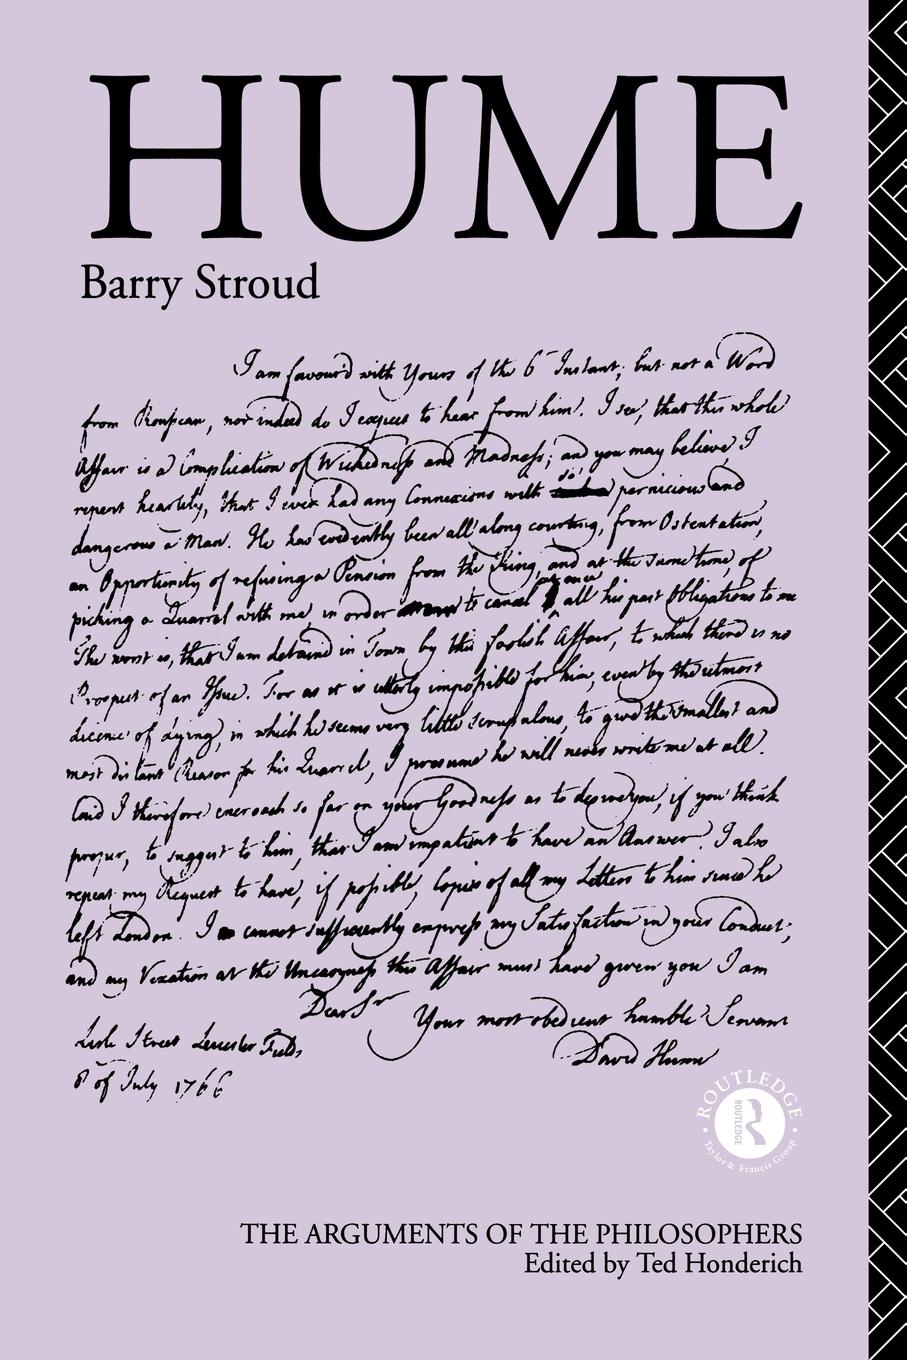 HUME
Barry Stroud
I am favour'd with Yours of the 6th Instant; but not a Word
from Rousseau, nor indeed do I expect to hear from him. I see, that this whole
Affair is a Complication of Wickedness and Madness; and you may believe, I
repent heartily, that I ever had any Connexions with so pernicious and
dangerous a Man. He has evidently been all along courting, from Ostentation,
an Opportunity of refusing a Pension from the King, and at the same time, of
picking a Quarrel with me, in order to cancel at once all his past Obligations to me
The worst is, that I am detaind in Town by this foolish Affair, to which there is no
Prospect of an Issue. For as it is utterly impossible for him, even by the utmost
Licence of Lying, in which he seems very little scrupulous, to give the smallest and
most distant Reason for his Quarrel, I presume he will never write me at all.
Coud I therefore encroach so far on your Goodness as to desire you, if you think
proper, to suggest to him, that I am impatient to have an Answer. I also
repeat my Request to have, if possible, Copies of all my Letters to him since he
left London. I cannot sufficiently express my Satisfaction in your Conduct;
and my Vexation at the Uneasyness this Affair must have given you I am
Dear Sr
Your most obedient humble Servant
Lisle Street Leicester Fields
David Hume
8 of July 1766
ROUTLEDGE
ROUTLEDGE
Taylor & Francis Group
THE ARGUMENTS OF THE PHILOSOPHERS
Edited by Ted Honderich